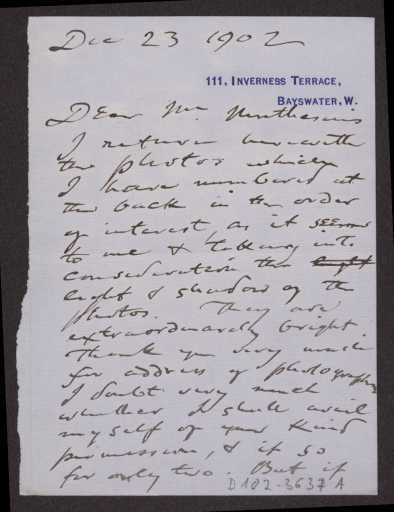 Dec 23 1902
111, INVERNESS TERRACE,
BAYSWATER, W.
Dear Mr
I return herewith
the photos which
I have numbered at
the back in the order
of interest, as it seems
to me & taking into
consideration the light
light & shadow of the
photos. They are
extraordinarily bright.
Thank you very much
for address of photographer
I doubt very much
whether I shall avail
myself of your kind
permission, & if so
for only two. But if
D182-3637 A